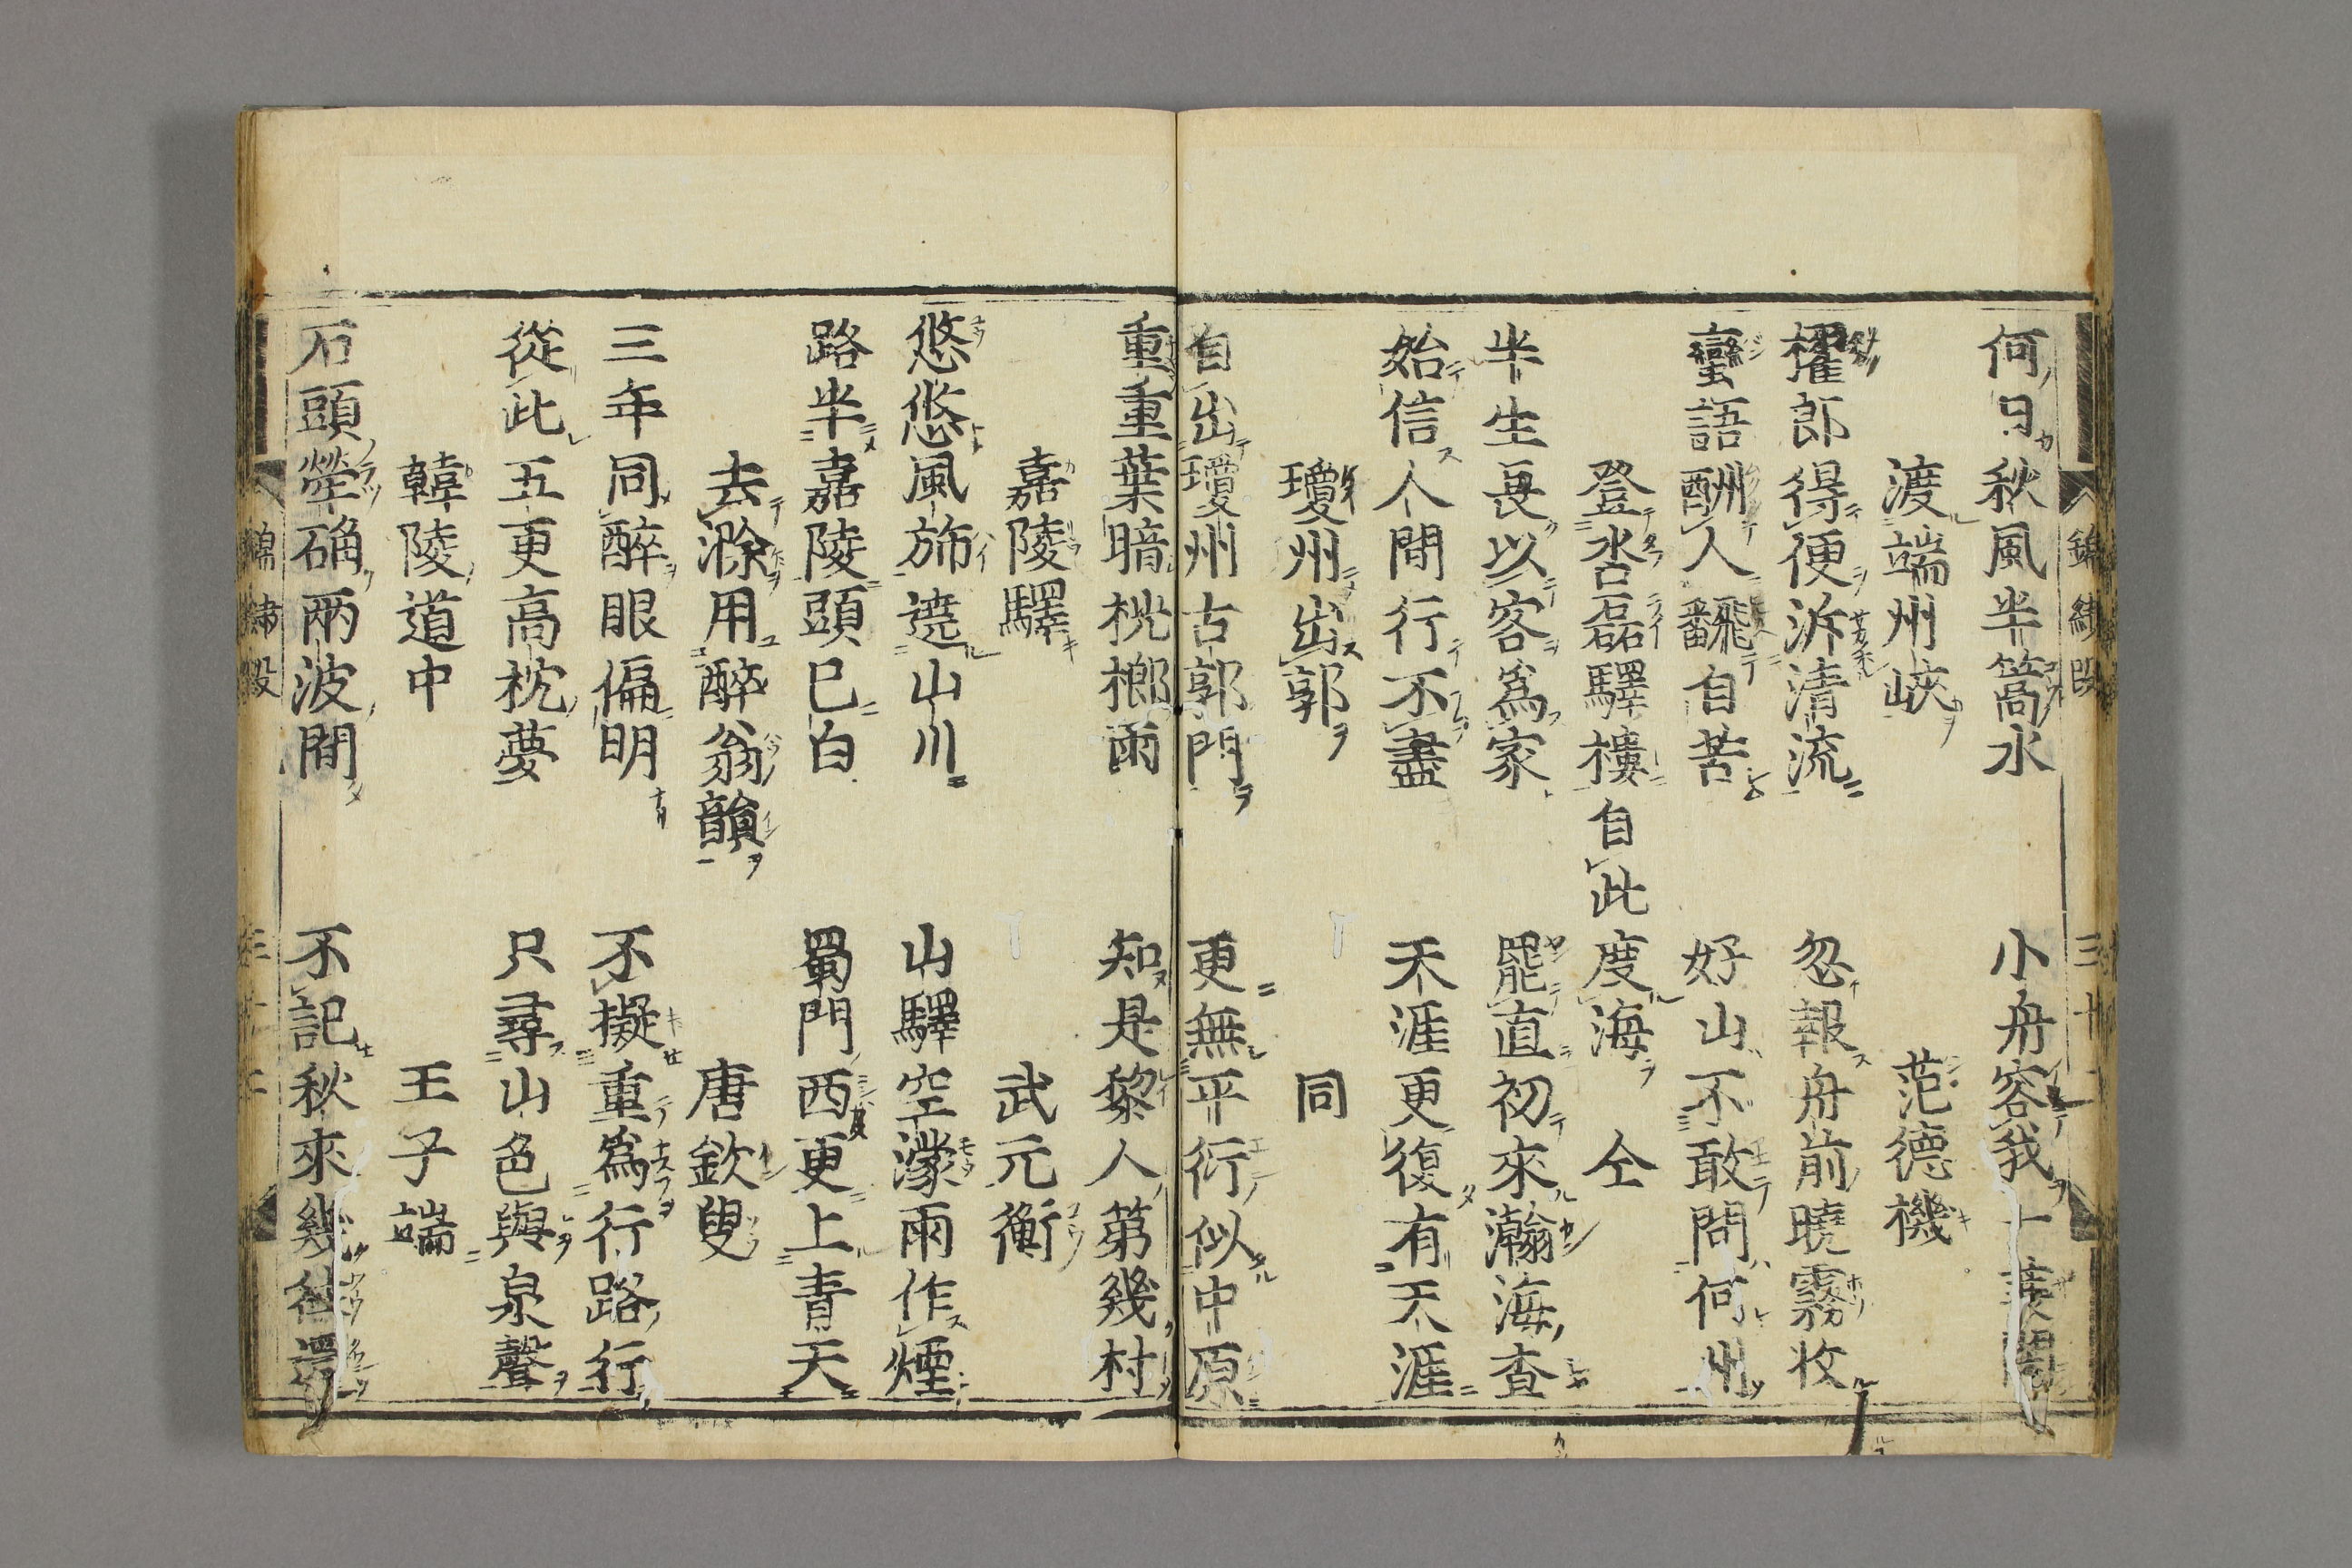 何日秋風半篙水　小舟容我一蓑閑
渡端州峽　范德機
櫂郎得便泝清流　忽報舟前曉霧收
蠻語酬人飜自苦　好山不敢問何州
登沓磊驛樓自此度海　仝
半生長以客爲家　罷直初來瀚海査
始信人間行不盡　天涯更復有天涯
瓊州出郭　同
自出瓊州古郭門　更無平衍似中原
重重葉暗桄榔雨　知是黎人第幾村
嘉陵驛　武元衡
悠悠風旆遶山川　山驛空濛雨作煙
路半嘉陵頭已白　蜀門西更上青天
去滁用醉翁韻　唐欽叟
三年同醉眼偏明　不擬重爲行路行
從此五更高枕夢　只尋山色與泉聲
韓陵道中　王子端
石頭犖确兩波間　不記秋來幾往還
錦繡段　三十一
錦繡段